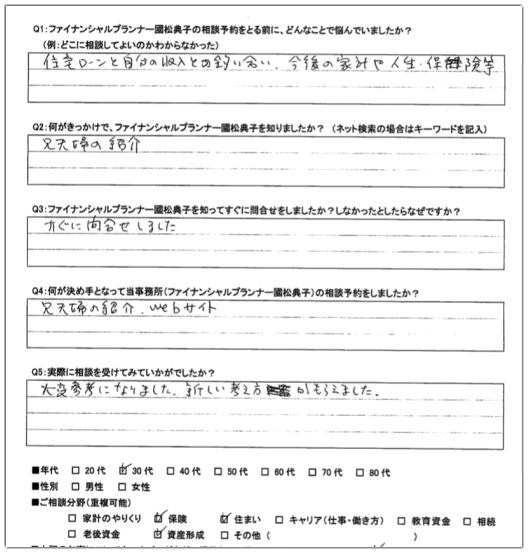 Q1:ファイナンシャルプランナー國松典子の相談予約をとる前に、どんなことで悩んでいましたか？
(例:どこに相談してよいのかわからなかった)
住宅ローンと自分の収入との釣り合い、今後の家計や人生・保険等
Q2:何がきっかけで、ファイナンシャルプランナー國松典子を知りましたか？ （ネット検索の場合はキーワードを記入）
兄夫婦の紹介
Q3:ファイナンシャルプランナー國松典子を知ってすぐに問合せをしましたか？しなかったとしたらなぜですか？
すぐに問合せしました
Q4:何が決め手となって当事務所(ファイナンシャルプランナー國松典子)の相談予約をしましたか？
兄夫婦の紹介、webサイト
Q5:実際に相談を受けてみていかがでしたか？
大変参考になりました。新しい考え方がもらえました。
■年代 □ 20代 ☑ 30代 □ 40代 □ 50代 □ 60代 □ 70代 □ 80代
■性別 □ 男性 □ 女性
■ご相談分野(重複可能)
□ 家計のやりくり ☑ 保険 ☑ 住まい □ キャリア(仕事・働き方) □ 教育資金 □ 相続
□ 老後資金 ☑ 資産形成 □ その他 ( )